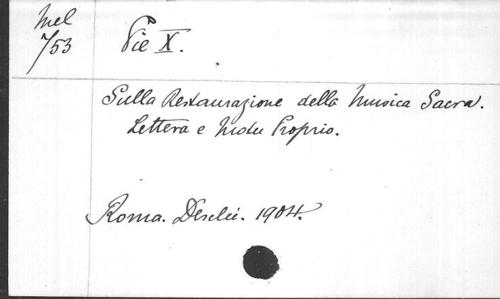 Mel
7/53
Pie X.
Sulla Restaurazione della Musica Sacra.
Lettera e Motu Proprio.
Roma. Desclée. 1904.